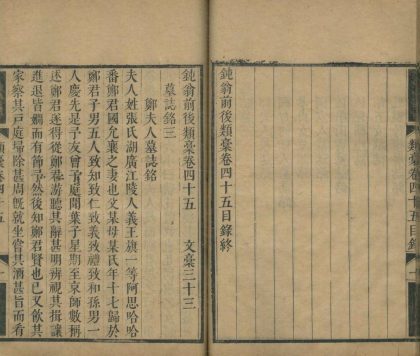 類稾卷四十五
鈍翁前後類稾卷四十五目録終
鈍翁前後類稾卷四十五 文稾三十三
墓誌銘三
鄭夫人墓誌銘
夫人姓張氏湖廣江陵人義王旗一等阿思哈哈
番鄭君國允襄之妻也父某母某氏年十七歸於
鄭君子男五人致知致仁致義致禮致和孫男一
人慶先是予友曾庭聞葉子星期至京師數稱
述鄭君遂得從鄭君游聽其辭甚明辨視其揖讓
進退皆嫺而有節予然後知鄭君賢也已又飲其
家察其戶庭場除甚周旣就坐嘗其酒甚旨而看
類稾卷四十五